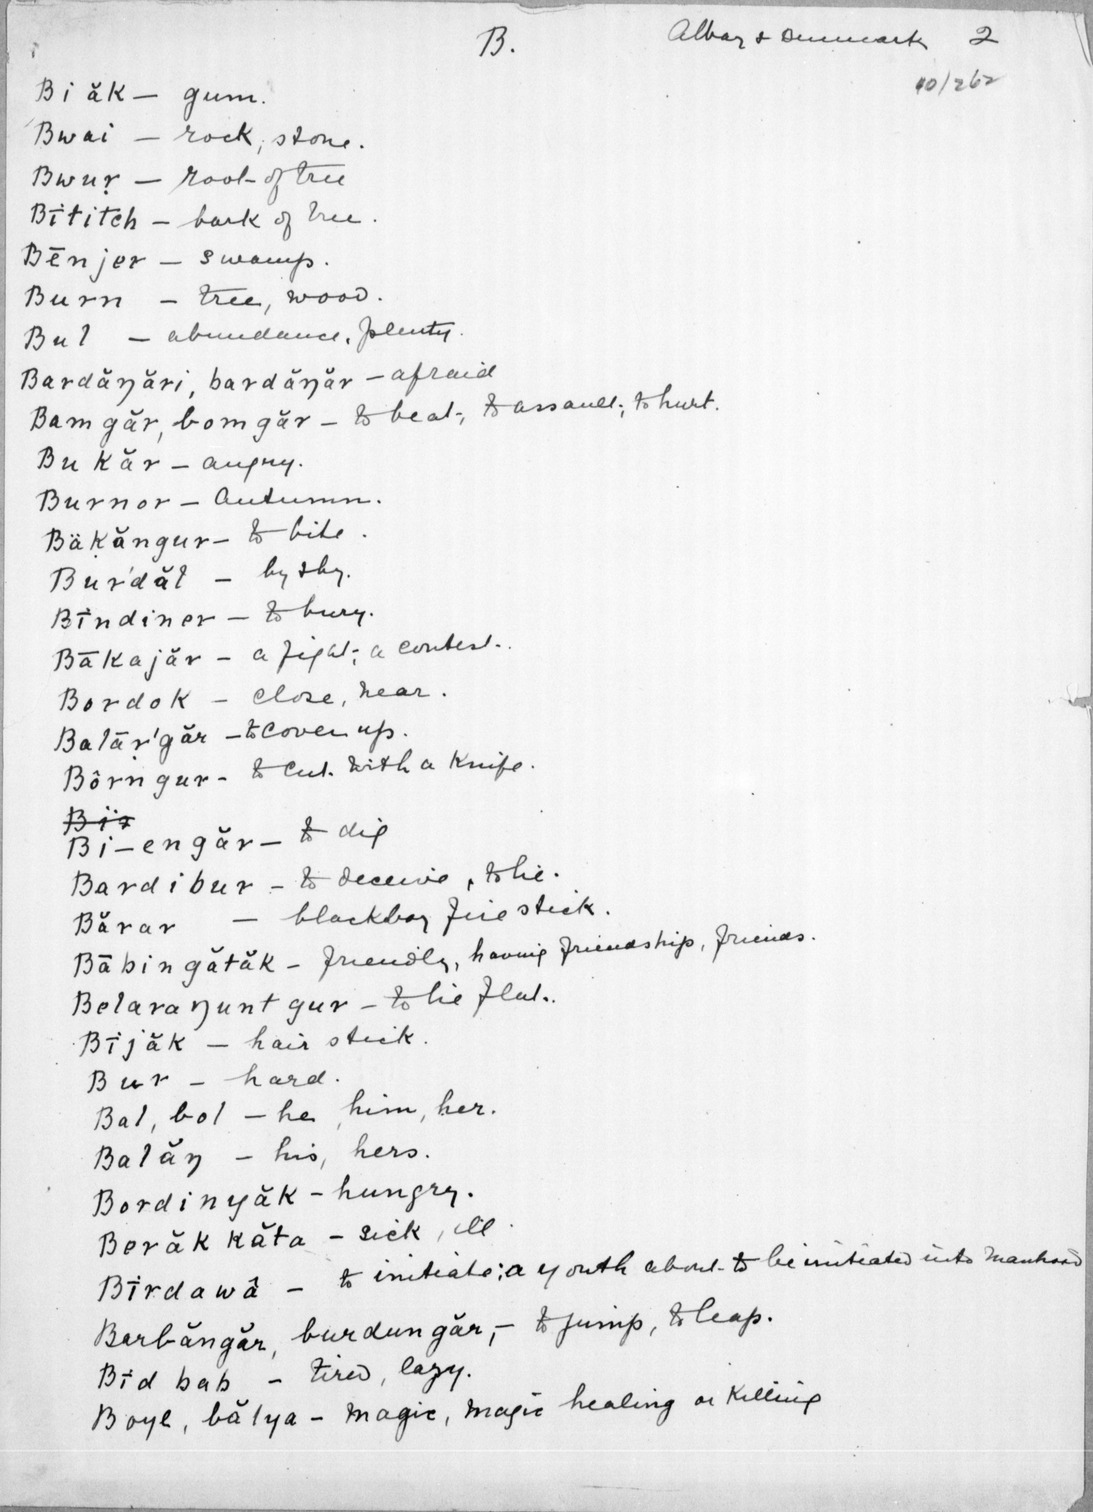 B. Albany & Denmark 2
10/262
Biăk — gum.
Bwai — rock, stone.
Bwuṛ — root of tree
Bītitch — bark of tree.
Bēnjer — swamp.
Burn — tree, wood.
Bul — abundance, plenty.
Bardăŋări, bardăŋăr — afraid
Bamgăr, bomgăr — to beat; to assault; to hurt.
Bukăr — angry.
Burnor — Autumn.
Bäḳăngur — to bite.
Bur'dăl — by & by.
Bīndiner — to bury.
Bākajăr — a fight; a contest.
Bordok — close, near.
Balāṛ'găr — to cover up.
Bôrṇgur - to cut with a knife.
Bi-engăr — to dig
Bardibur — to deceive, to lie.
Bărar — blackboy fire stick.
Bābingătăk — friendly, having friendship, friends.
Belaraŋuntgur — to lie flat.
Bījăk — hair stick.
Bur — hard.
Bal, bol — he, him, her.
Balăŋ — his, hers.
Bordinyăk — hungry.
Berăkkăta — sick, ill.
Bīrdawâ — to initiate; a youth about to be initiated into manhood
Barbăngăr, burdungăr, — to jump, to leap.
Bīdbab — tired, lazy.
Boyl, bălya — magic, magic healing or killing